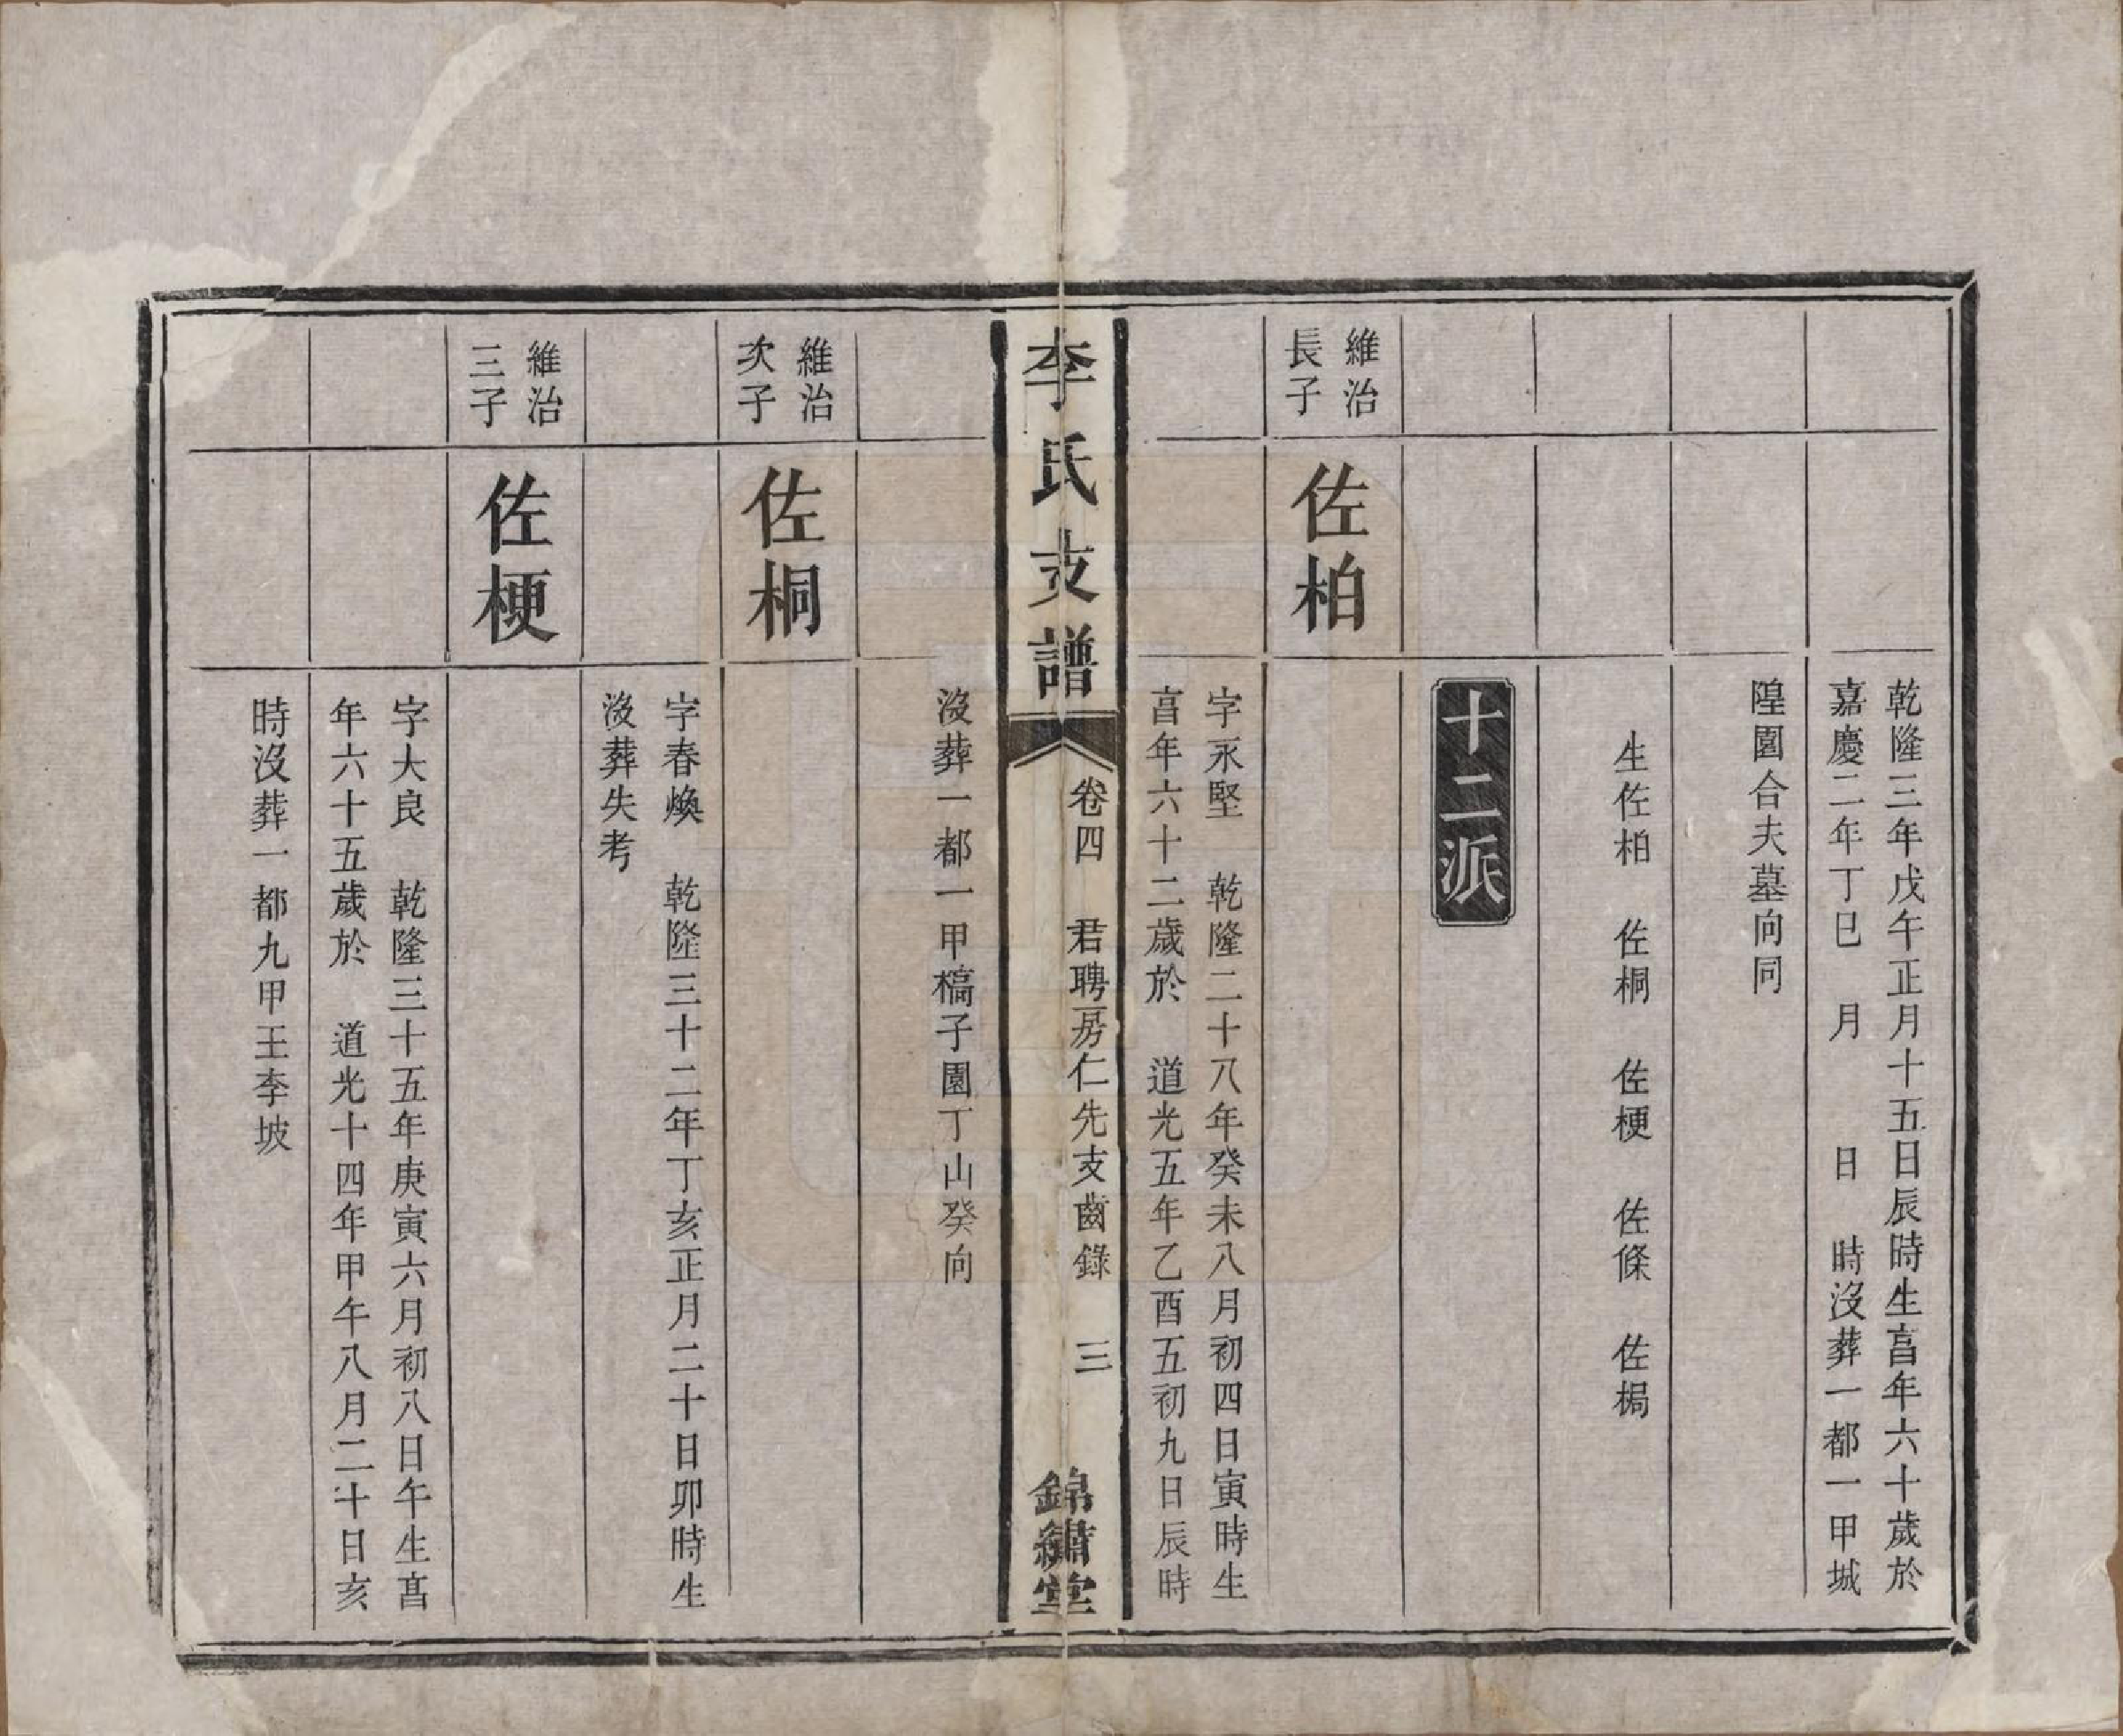 乾隆三年戊午正月十五日辰時生亯年六十歲於
嘉慶二年丁巳　月　　日　時沒葬一都一甲城
隍園合夫墓向同
生佐柏　佐桐　佐梗　佐條　佐梮
十二派
維治
長子
佐柏
字永堅　乾隆二十八年癸未八月初四日寅時生
亯年六十二歲於　道光五年乙酉五初九日辰時
李氏支譜
卷四　君聘房仁先支齒錄　三
錦繡堂
沒葬一都一甲槁子園丁山癸向
維治
次子
佐桐
字春煥　乾隆三十二年丁亥正月二十日卯時生
沒葬失考
維治
三子
佐梗
字大良　乾隆三十五年庚寅六月初八日午生亯
年六十五歲於　道光十四年甲午八月二十日亥
時沒葬一都九甲王李坡